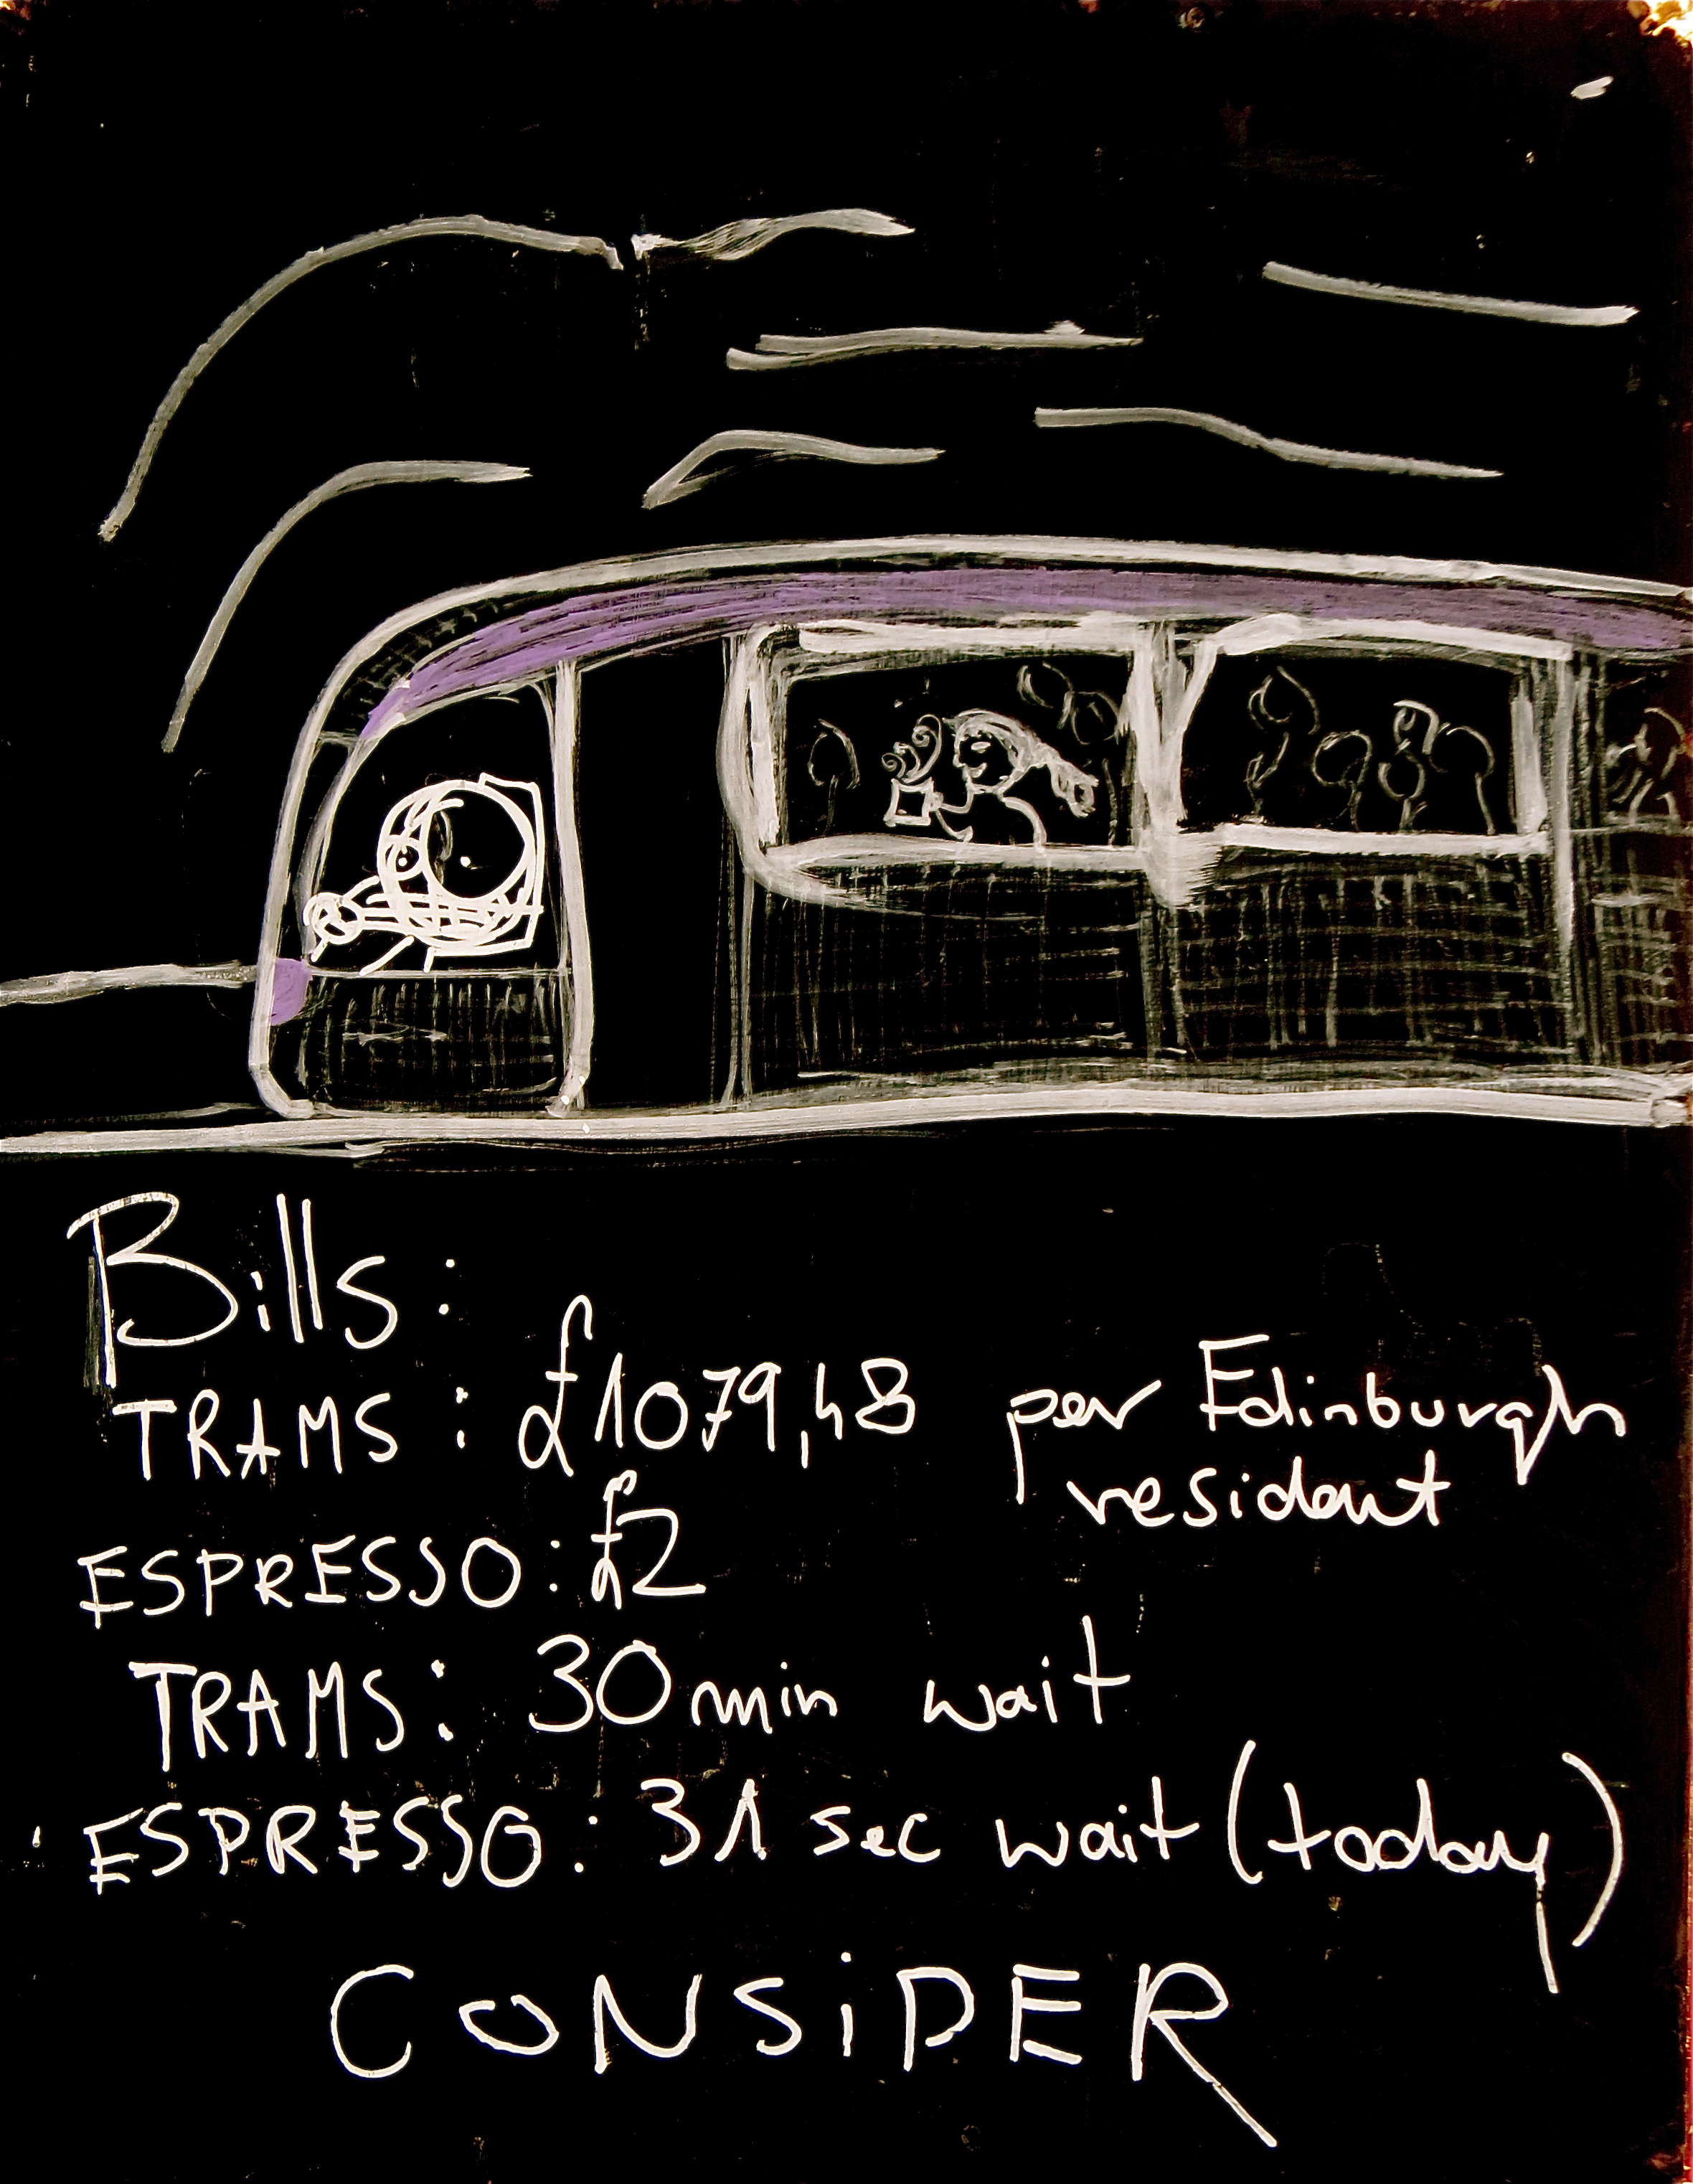 Bills:
TRAMS: £1079,48 per Edinburgh
resident
ESPRESSO: £2
TRAMS: 30 min wait
ESPRESSO: 31 sec wait (today)
CONSiDER